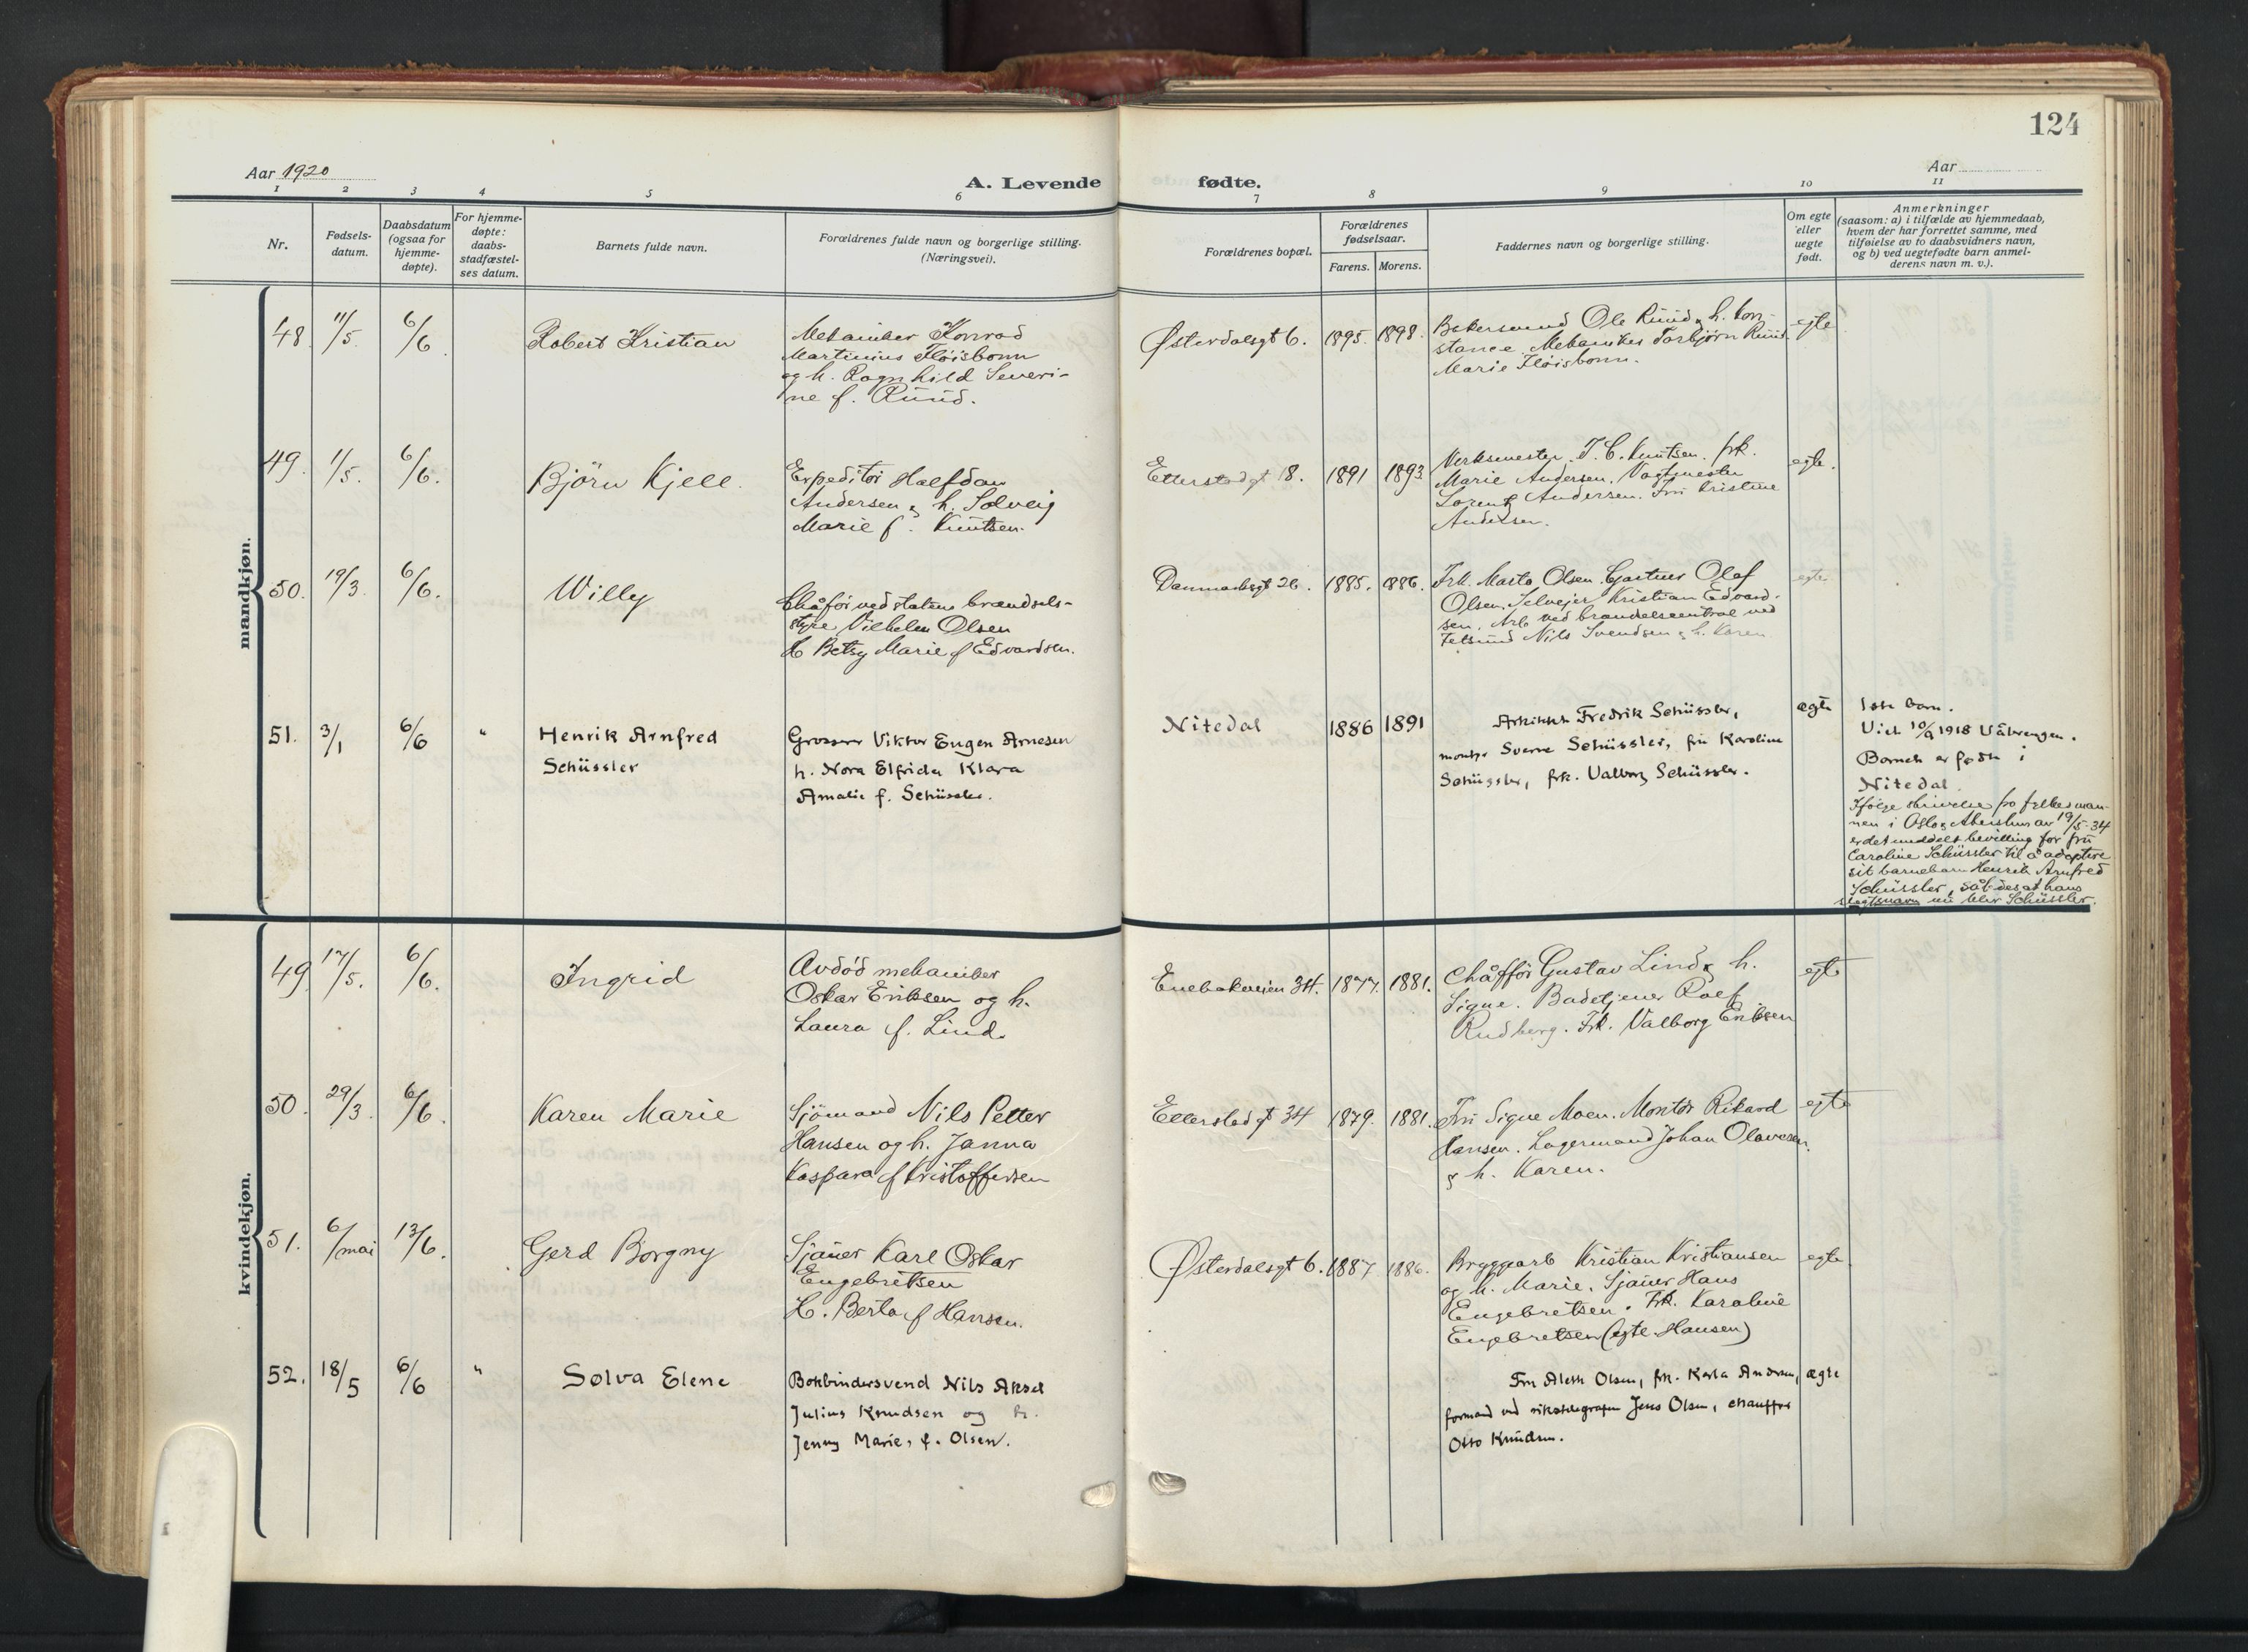 124
Aar 1920
A. Levende
fødte.
Aar
1 2 3 4 5 6 7 8 9 10 11
Nr.
Fødsels-
datum.
Daabsdatum
(ogsaa for
hjemme-
døpte).
For hjemme-
døpte:
daabs-
stadfæstel-
ses datum.
Barnets fulde navn.
Forældrenes fulde navn og borgerlige stilling.
(Næringsvei).
Forældrenes bopæl.
Forældrenes
fødselsaar.
Farens. Morens.
Faddernes navn og borgerlige stilling.
Om egte
eller
uegte
født.
Anmerkninger
(saasom: a) i tilfælde av hjemmedaab,
hvem der har forrettet samme, med
tilføielse av to daabsvidners navn,
og b) ved uegtefødte barn anmel-
derens navn m. v.).
mandkjøn.
48. 11/5. 6/6.
Robert Kristian
Mekaniker Konrad
Martinius Fløisbonn
og h. Ragnhild Severi-
ne f. Ruud.
Østerdalsgt 6. 1895. 1898.
Bakersvend Ole Ruud & h. Kon-
stance. Mekaniker Torbjørn Ruud.
Marie Fløisbonn.
egte
49. 1/5. 6/6.
Bjørn Kjell.
Expeditør Halfdan
Andersen & h. Solveig
Marie f. Knutsen.
Etterstadgt 18. 1891 1893
Verksmester T. C. Knutsen. frk.
Marie Andersen. Vagtmester
Lorentz Andersen. Fru Kristine
Andersen.
egte.
50. 19/3. 6/6.
Willy
Chåfør ved statens brændsels-
styre Vilhelm Olsen
H. Betsy Marie f Edvardsen.
Danmarksgt 26. 1885. 1886.
Frk. Marta Olsen. Gartner Olaf
Olsen. Selvejer Kristian Edvard-
sen. Arb ved brændselscentral ved
Fetsund Nils Svendsen & h. Karen
egte
51. 3/1 6/6 "
Henrik Arnfred
Schüssler
Grosserer Viktor Eugen Arnesen
h. Nora Elfrida Klara
Amalie f. Schüssler.
Nitedal 1886 1891
Arkitekt Fredrik Schüssler,
montør Sverre Schüssler, fru Karoline
Schüssler, frk. Valborg Schüssler.
ægte
1ste barn.
Viet 10/9 1918 Vålerengen.
Barnet er født i
Nitedal.
Ifølge skrivelse fra fylkesman-
nen i Oslo & Akershus av 19/5-34
er det meddelt bevilling for fru
Caroline Schüssler til å adoptere
sit barnebarn Henrik Arnfred
Schüssler, således at hans
slegtsnavn nu blir Schüssler.
kvindekjøn.
49 17/5. 6/6.
Ingrid
Avdød mekaniker
Oskar Eriksen og h.
Laura f. Lind.
Enebakveien 34. 1877. 1881.
Chåffør Gustav Lind & h.
Signe. Badetjener Rolf
Rudberg. Frk. Valborg Eriksen
egte
50. 29/3. 6/6.
Karen Marie
Sjømand Nils Petter
Hansen og h. Janna
Kaspara f Kristoffersen
Etterstadgt 34 1879. 1881.
Fru Signe Moen. Montør Rikard
Hansen. Lagermand Johan Olavesen
& h. Karen.
egte
51. 6/mai 13/6.
Gerd Borgny
Sjauer Karl Oskar
Engebretsen
H. Berta f Hansen.
Østerdalsgt 6. 1887 1886.
Bryggearb Kristian Kristiansen
og h. Marie. Sjauer Hans
Engebretsen. Frk. Karoline
Engebretsen (egte Hansen)
egte
52. 18/5 6/6 "
Solva Elene
Bokbindersvend Nils Aksel
Julius Knudsen og h.
Jenny Marie, f. Olsen.
Fru Aleth Olsen, frk. Karla Andersen,
formand ved rikstelegrafen Jens Olsen, chauffør
Otto Knudsen.
ægte